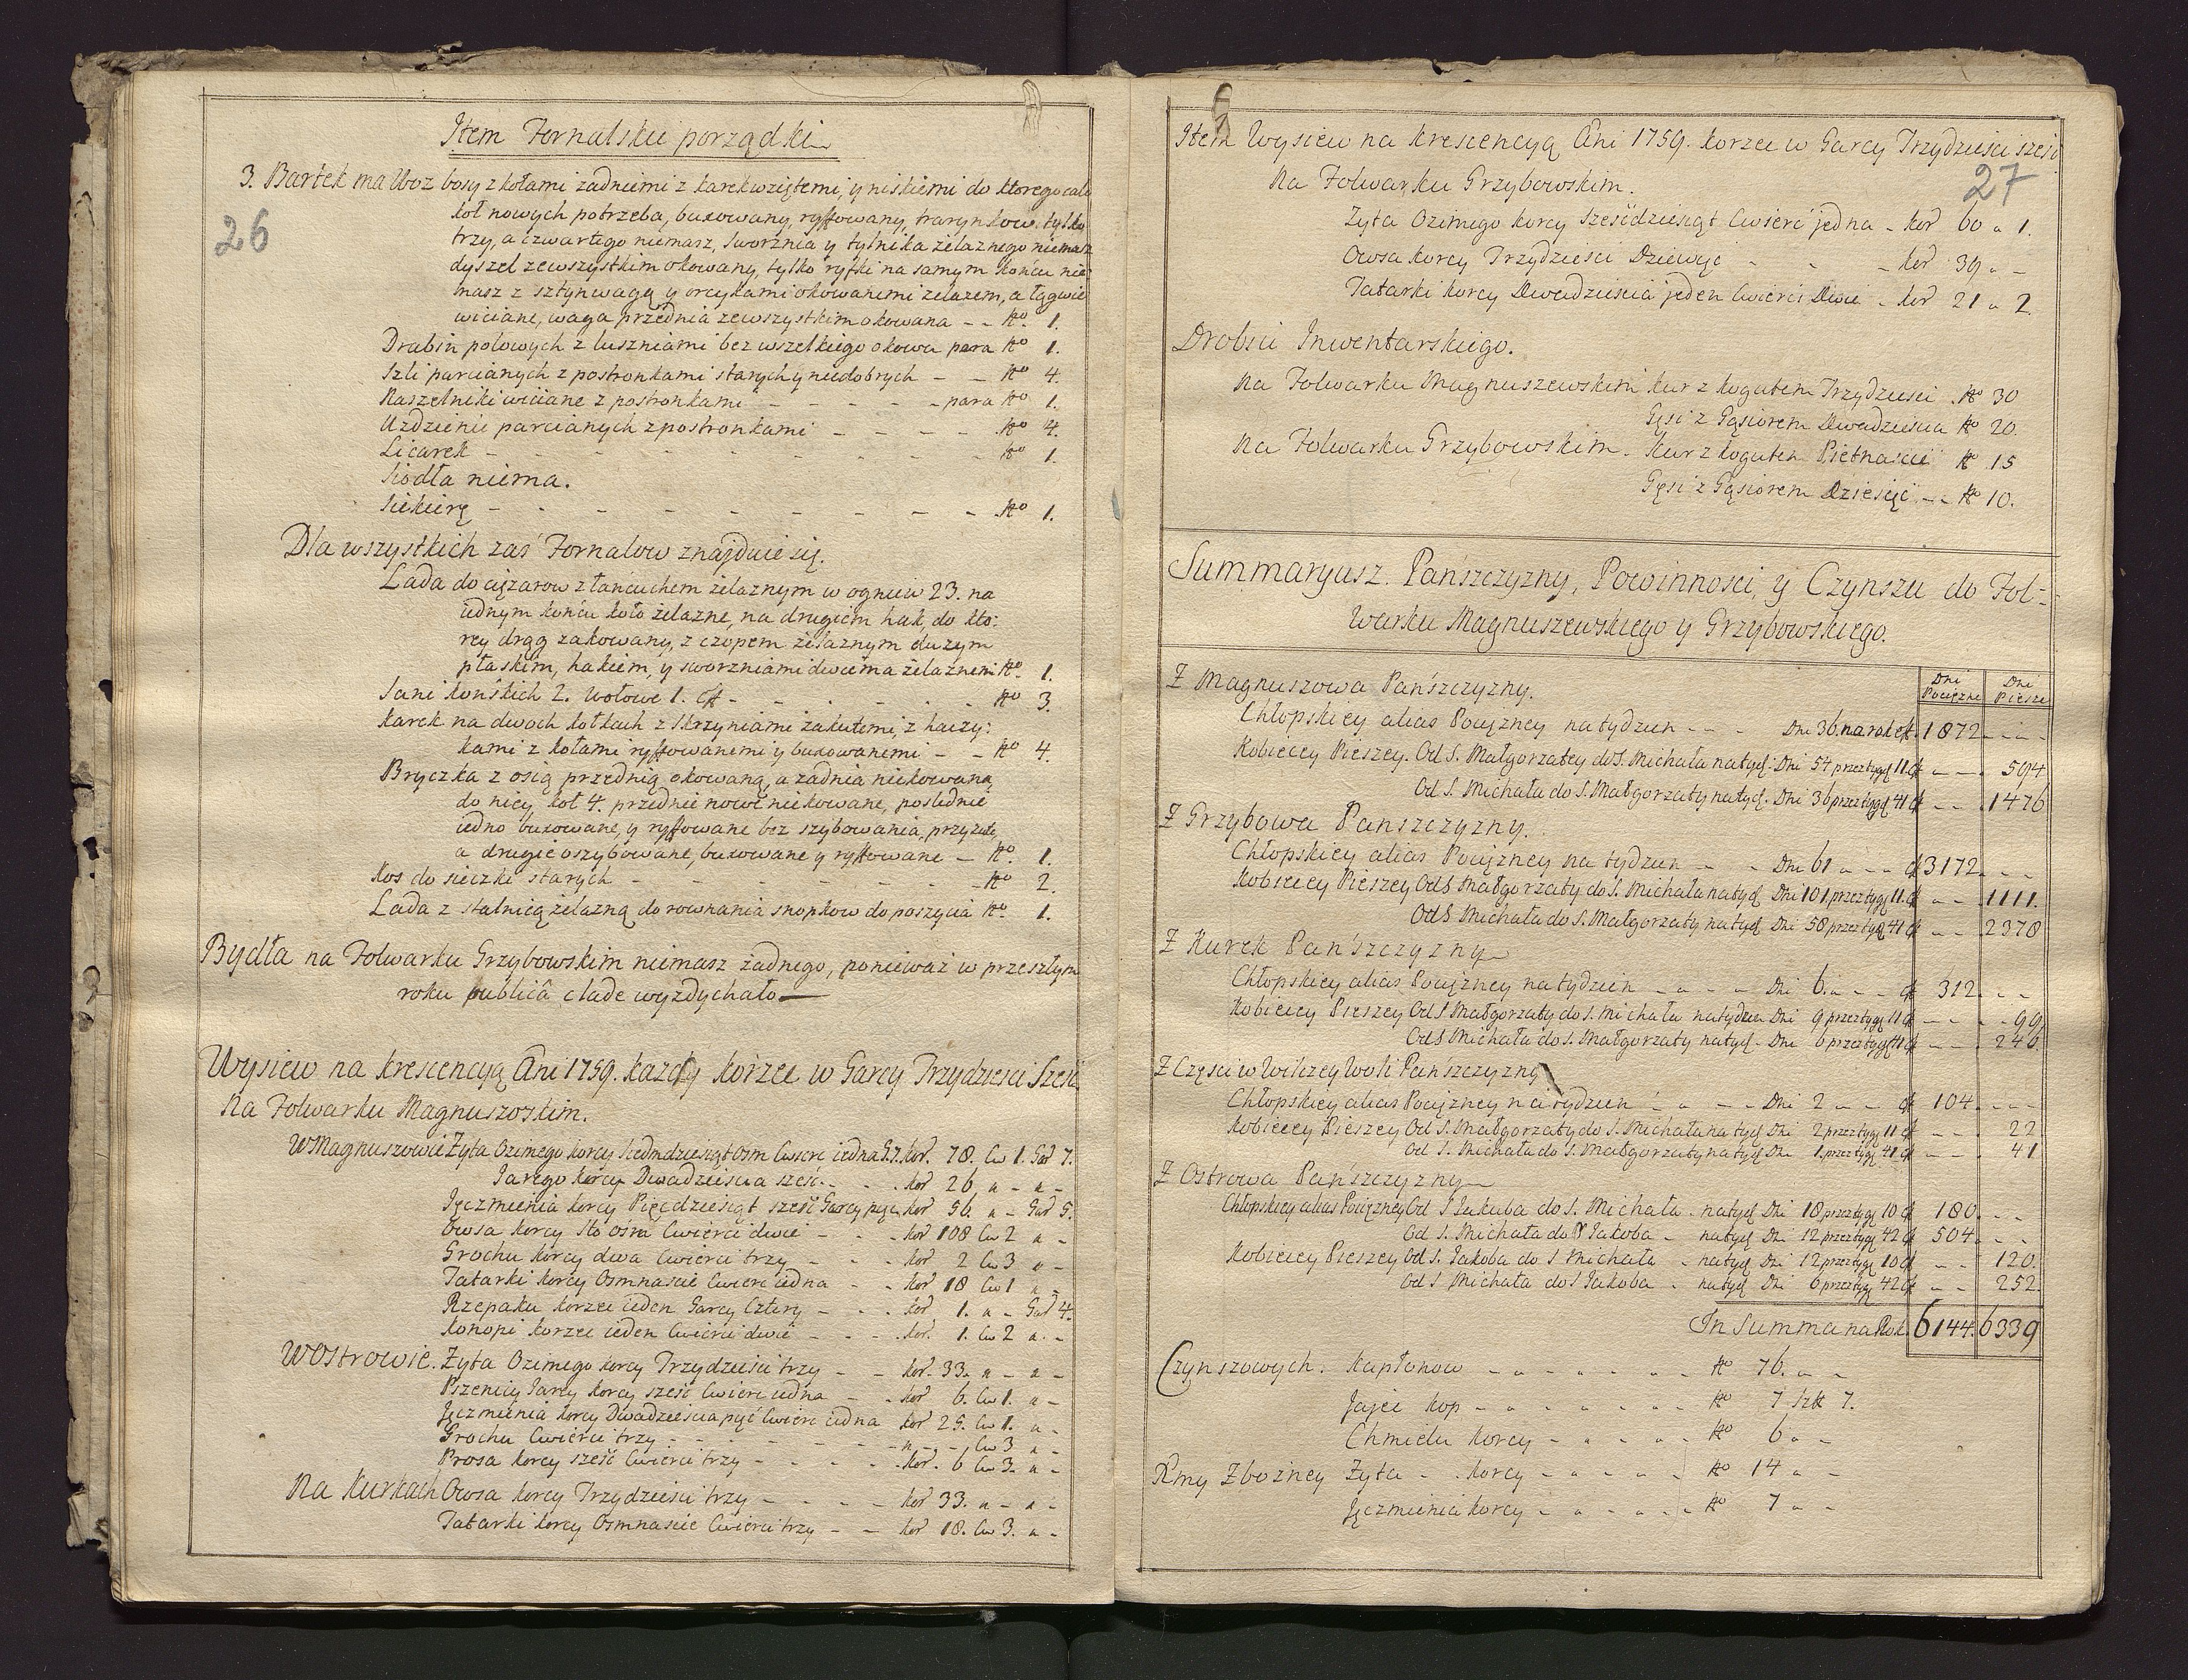 Item Fornalskie porządki
3. Bartek ma Woz bosy z kołami zadniemi z karek wziętemi, y niskiemi do ktorego całe
26
koł nowych potrzeba, buxowany, ryffowany, trarynkow, tylko
trzy, a czwartego niemasz, sworznia y tylnika żelaznego niemasz
dyszel zewszystkim okowany, tylko ryfki na samym końcu nie-
masz z sztynwagą y orczykami okowanemi żelazem, a łągwie
wiciane, waga przednia zewszystkim okowana - - No. 1.
Drabin polowych z luszniami bez wszelkiego okowu para No 1.
Szli parcianych z postronkami starych y niedobrych - - No 4.
Naszelniki wiciane z postronkami - - - - para No 1.
Uzdzienic parcianych z postronkami - - - - No 4.
Licarek - - - - - - - - No 1.
Siodła niema.
Siekierę - - - - - - - - No 1.
Dla wszystkich zaś Fornalow znajduie się.
Lada do ciężarow z łańcuchem żelaznym w ogniw 23. na
iednym końcu koło żelazne, na drugiem hak, do kto-
rey drąg zakowany, z czopem żelaznym dużym
płaskim, hakiem, y sworzniami dwiema żelaznemi No. 1.
Sani końskich 2. Wołowe 1. - - - - - No 3.
Karek na dwoch kołkach z skrzyniami zakutemi, z haczy-
kami z kołami ryffowanemi y buxowanemi - - No 4.
Bryczka z osią przednią okowaną, a zadnia niekowana
do niey koł 4. przednie nowe niekowane, poslednie
iedno buxowane, y ryffowane bez szybowania, przyzute,
a drugie oszybowane, buxowane y ryffowane - No. 1.
Kos do sieczki starych - - - - - - No 2.
Lada z stalnicą żelazną do rownania snopkow do poszycia No. 1.
Bydła na Folwarku Grzybowskim niemasz żadnego, ponieważ w przeszłym
roku publicâ clade wyzdychało
Wysiew na krescencyą Ani 1759. każdy korzec w Garcy Trzydzieści Sześć
Na Folwarku Magnuszoskim.
W Magnuszowie Zyta Ozimego korcy Siedmdziesiąt osm Cwierc iedna G. 7. Kor. 78. Cw 1. Gar 7.
Jarego korcy Dwadziescia sześć - - - Kor 26 " - " -
Jęczmienia korcy Pięćdziesiąt sześć Garcy pięć Kor 56. " - Gar 5.
Owsa korcy Sto ośm Cwierci dwie - - - Kor 108 Cw 2 " -
Grochu korcy dwa Cwierci trzy - - - Kor 2 Cw 3 " -
Tatarki korcy Osmnascie Cwierc iedna - - Kor 18 Cw 1 " -
Rzepaku korzec ieden Garcy Cztery - - - Kor 1. " - Gar 4.
Konopi korzec ieden Cwierci dwie - - - Kor. 1. Cw 2 " -
W Ostrowie. Zyta Ozimego korcy Trzydziesci trzy - - Kor. 33. " - " -
Pszenicy Jarey korcy sześć Cwierc iedna - - Kor 6. Cw 1. " -
Jęczmienia korcy Dwadziescia pięć Cwierc iedna Kor 25. Cw 1. " -
Grochu Cwierci trzy - - - - - " - - Cw 3 " -
Prosa korcy sześć Cwierci trzy - - - - Kor. 6 Cw 3. " -
Na Kurkach Owsa korcy Trzydziesci trzy - - - - Kor 33. " - " -
Tatarki korcy Osmnascie Cwierci trzy - - Kor 18. Cw 3. " -
Item Wysiew na krescencyą Ani 1759. korzec w Garcy Trzydziesci sześć
27
Na Folwarku Grzybowskim.
Zyta Ozimego korcy Sześcdziesiąt Cwierć jedna - Kor 60 " 1.
Owsa korcy Trzydziesci Dziewięc - - - Kor 39 " -
Tatarki korcy Dwadzieścia jeden Cwierci Dwie - Kor 21 " 2.
Drobiu Inwentarskiego.
Na Folwarku Magnuszewskim kur z kogutem Trzydziesci . No 30
Gęsi z Gąsiorem Dwadziescia No 20.
Na Folwarku Grzybowskim. Kur z kogutem Pietnascie No 15
Gęsi z Gąsiorem Dziesięć - - No 10.
Summaryusz. Pańszczyzny, Powinności, y Czynszu do Fol-
warku Magnuszewskiego y Grzybowskiego.
Dni Pociężne Dni Piesze
Z Magnuszowa Pańszczyzny.
Chłopskiey alias Pociężney na tydzien - - - Dni 36. na rok 1872 - - -
Kobiecey Pieszey. Od S. Małgorzaty do S. Michała na tyd. Dni 54 przez tyg 11. - - - 594
Od S. Michała do S. Małgorzaty na tyd. Dni 36 przez tyg 41 - - - 1476
Z Grzybowa Panszczyzny.
Chłopskiey alias Pociężney na tydzien - - - Dni 61 " - - 3172. - -
Kobiecey Pieszey Od S Małgorzaty do S. Michała na tyd Dni 101 przez tyg 11. " - 1111.
Od S Michała do S. Małgorzaty na tyd Dni 58 przez tyg 41 - - 2378
Z Kurek Pańszczyzny
Chłopskiey alias Pociężney na tydzien - " - - Dni 6. " - - 312. - -
Kobiecey Pieszey Od S Małgorzaty do S. Michała na tydzien Dni 9 przez tyg 11 - - - 99.
Od S Michała do S. Małgorzaty na tyd - Dni 6 przez tyg 41 - - - 246.
Z Częsci w Wilczey Woli Pańszczyzny
Chłopskiey alias Pociężney na tydzien - " - - Dni 2 " - 104. - - -
Kobiecey Pieszey Od S. Małgorzaty do S. Michała na tyd Dni 2 przez tyg 11 - - - 22
Od S. Michała do S. Małgorzaty na tyd Dni 1. przez tyg 41 - - - 41
Z Ostrowa Pańszczyzny
Chłopskiey alias Pociężney Od S Jakuba do S. Michała - na tyd Dni 18 przez tyg 10 180. - -
Od S. Michała do S Jakoba - na tyd Dni 12 przez tyg 42 504. - -
Kobiecey Pieszey Od S. Jakoba do S Michała - na tyd Dni 12 przez tyg 10 - - 120.
Od S Michała do S Jakoba - na tyd Dni 6 przez tyg 42 - - 252.
In Summa na Rok. 6144. 6339
Czynszowych. Kapłonow - " - " - " - No 76. " -
Jajec kop - " - " - " - No 7 szt 7.
Chmielu korcy - " - " - No 6 " -
Zbożney Zyta - - korcy - " - " - No 14 " -
Jęczmienia korcy - " - " - No 7 " -